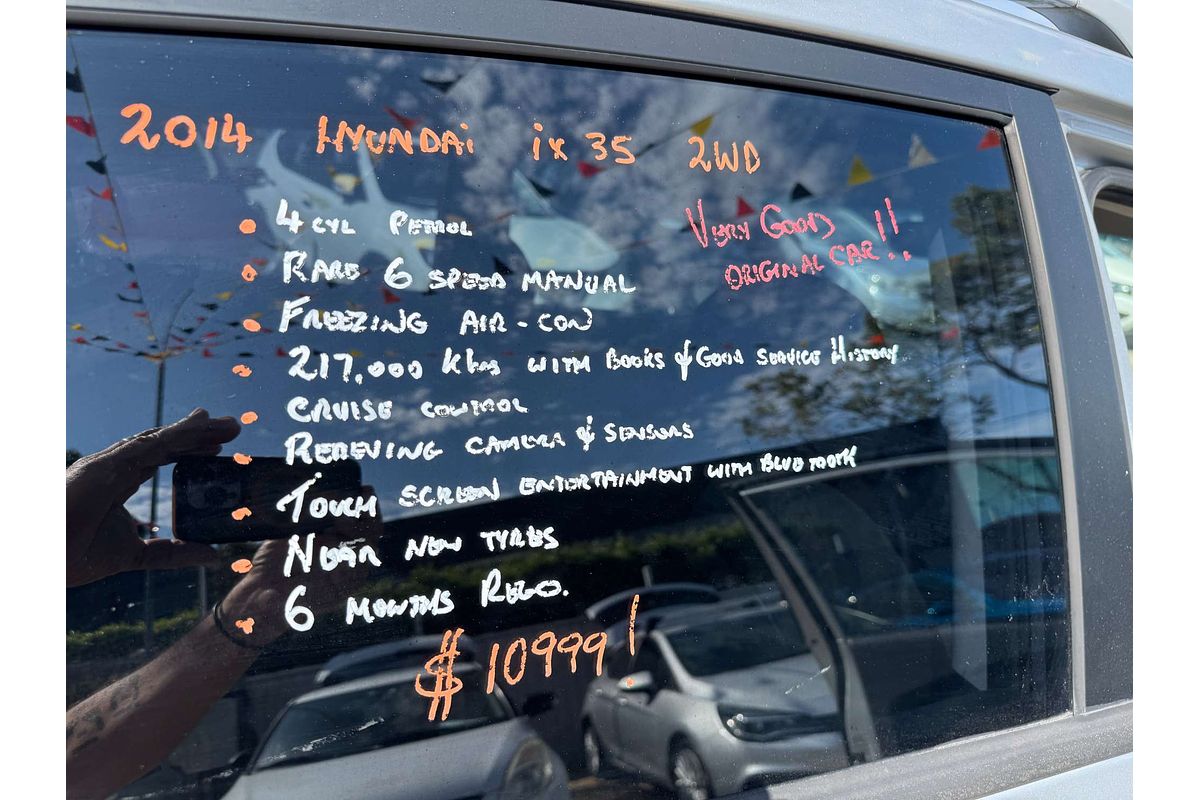 2014 HYUNDAi ix 35 2WD
VERY GOOD
ORIGINAL CAR!!
• 4 CYL PETROL
• RARE 6 SPEED MANUAL
• FREEZING AIR-CON
• 217,000 Khs WITH BOOKS & GOOD SERVICE HISTORY
• CRUISE CONTROL
• REVERVING CAMERA & SENSORS
• TOUCH SCREEN ENTERTAINMENT WITH BLUE TOOTH
• NEAR NEW TYRES
• 6 MONTHS REGO.
$10999!